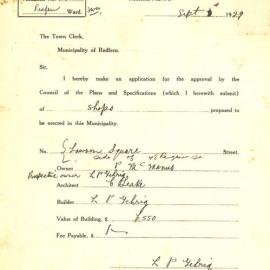 Redfern Ward.
Sept 1929
The Town Clerk,
Municipality of Redfern.
Sir,
I hereby make an application for the approval by the
Council of the Plans and Specifications (which I herewith submit)
of shops proposed to
be erected in this Municipality.
No. Lawson Square Street.
side of
Owner P McManus
Prospective owner L P Gehrig
Architect C Leake
Builder L. P Gehrig
Value of Building, £ 550
Fee Payable, £
L. P Gehrig